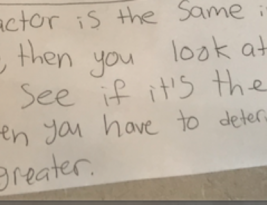 actor is the same i
then you look at
see if it's the
en you have to deter
greater.